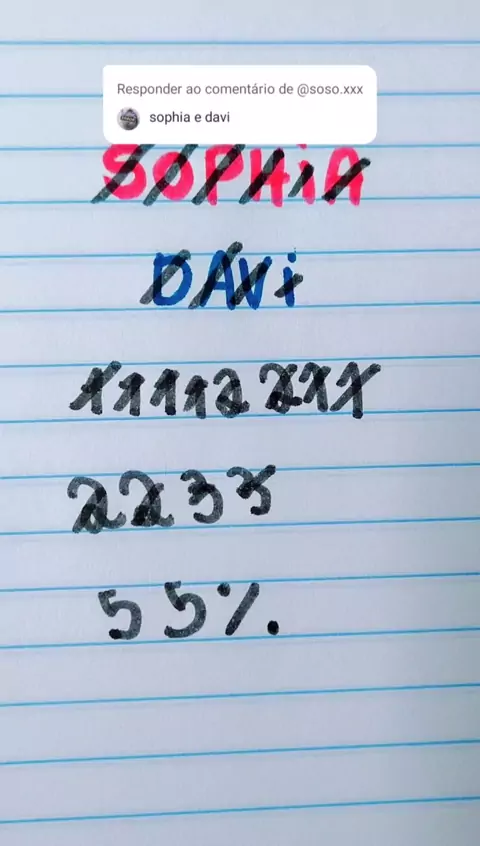 Responder ao comentário de @soso.xxx
sophia e davi
SOPHiA
DAVi
11112211
2233
55%.